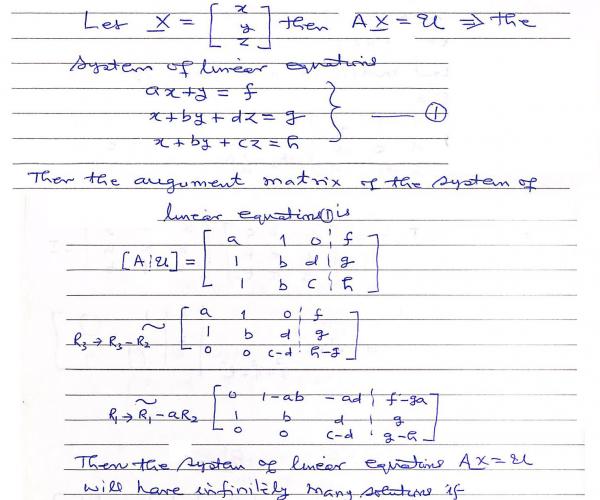 Let X = [ x y z ] then AX = U ⇒ the
system of linear equations
ax+y = f
x+by+dz = g } — ①
x+by+cz = h
Then the augument matrix of the system of
linear equations ① is
[A|U] = [ a 1 0 | f
1 b d | g
1 b c | h ]
R₃→R₃-R₂ ~ [ a 1 0 | f
1 b d | g
0 0 c-d | h-g ]
R₁→R₁-aR₂ ~ [ 0 1-ab -ad | f-ga
1 b d | g
0 0 c-d | g-h ]
Then the system of linear equations AX=U
will have infinitely many solutions if